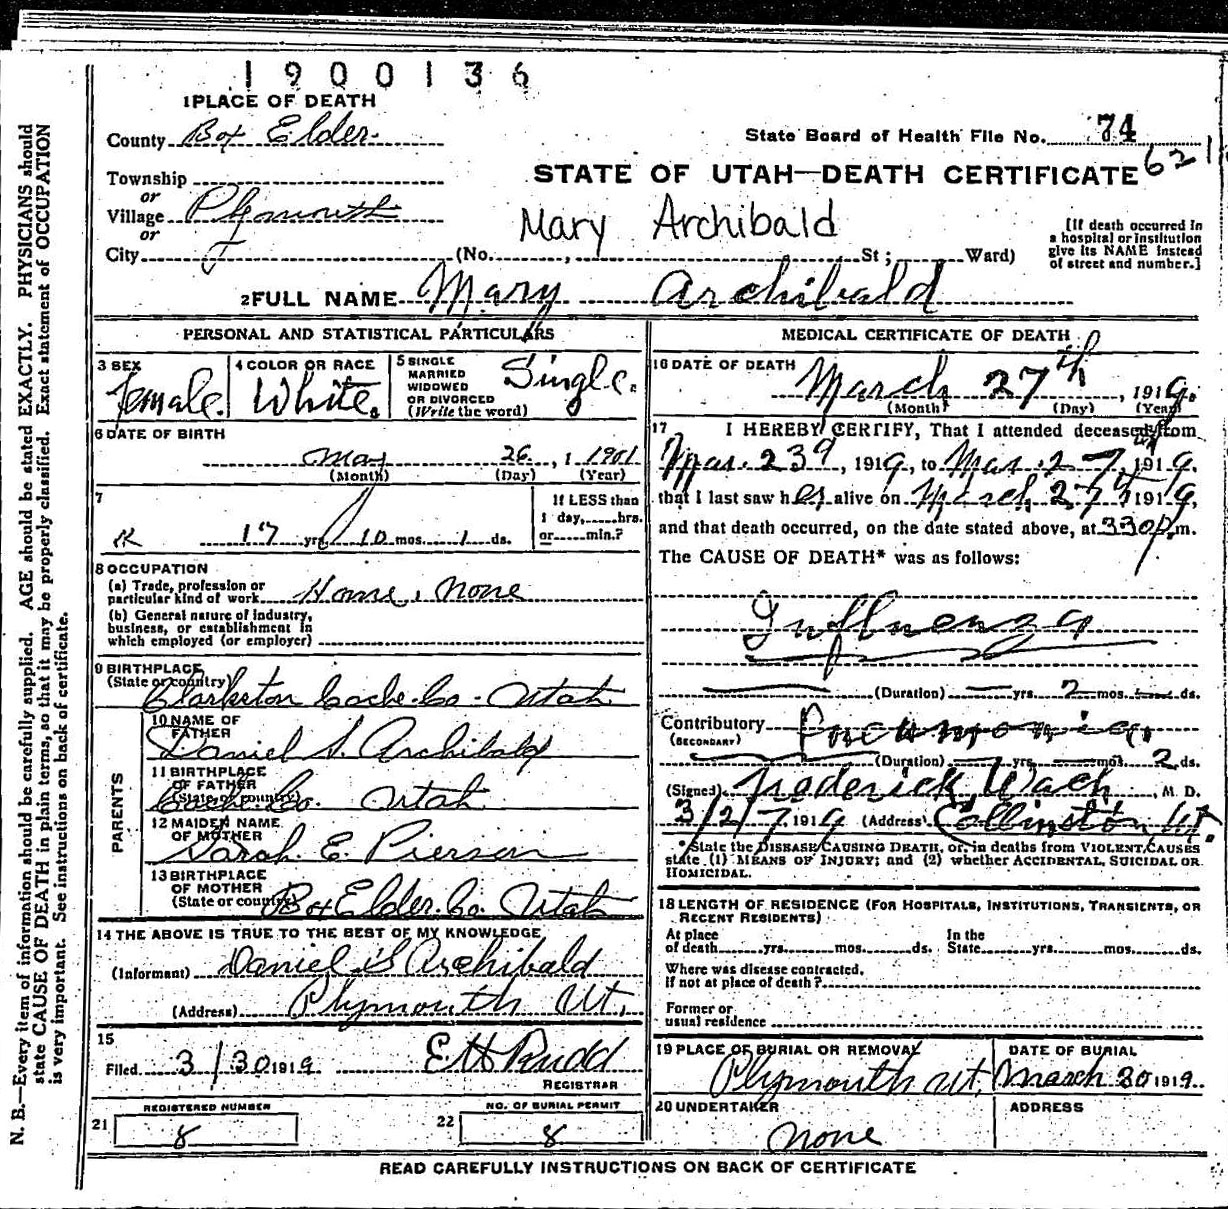 1900136
1 PLACE OF DEATH
County Box Elder.
State Board of Health File No. 74
Township
621
STATE OF UTAH—DEATH CERTIFICATE
or
Village Plymouth
Mary Archibald
or
City (No. , St; Ward)
[If death occurred in
a hospital or institution
give its NAME instead
of street and number.]
2 FULL NAME Mary Archibald
PERSONAL AND STATISTICAL PARTICULARS
3 SEX
female.
4 COLOR OR RACE
White.
5 SINGLE
MARRIED
WIDOWED
OR DIVORCED
(Write the word)
Single.
6 DATE OF BIRTH
May 26, 1 1901
(Month) (Day) (Year)
7
17 yrs 10 mos. 1 ds.
If LESS than
1 day, hrs.
or min.?
8 OCCUPATION
(a) Trade, profession or
particular kind of work Home, none
(b) General nature of industry,
business, or establishment in
which employed (or employer)
9 BIRTHPLACE
(State or country)
Clarkston Cache Co. Utah
PARENTS
10 NAME OF
FATHER
Daniel S. Archibald
11 BIRTHPLACE
OF FATHER
(State or country)
Cache Co. Utah
12 MAIDEN NAME
OF MOTHER
Sarah E. Pierson
13 BIRTHPLACE
OF MOTHER
(State or country) Box Elder Co. Utah
14 THE ABOVE IS TRUE TO THE BEST OF MY KNOWLEDGE
(Informant) Daniel S Archibald
(Address) Plymouth Ut.
15
Filed 3/30 1919 E H Rudd
REGISTRAR
REGISTERED NUMBER
21 8
NO. OF BURIAL PERMIT
22 8
MEDICAL CERTIFICATE OF DEATH
16 DATE OF DEATH
March 27th, 1919.
(Month) (Day) (Year)
17 I HEREBY CERTIFY, That I attended deceased from
Mar. 23d, 1919, to Mar. 27th, 1919.
that I last saw her alive on March 27th 1919,
and that death occurred, on the date stated above, at 330 p.m.
The CAUSE OF DEATH* was as follows:
Influenza
(Duration) — yrs. 2 mos. — ds.
Contributory Pneumonia.
(SECONDARY)
(Duration) — yrs. — mos. 2 ds.
(Signed) Frederick Wach, M. D.
3/27, 1919 (Address) Collinston, Ut.
*State the DISEASE CAUSING DEATH, or, in deaths from VIOLENT CAUSES
state (1) MEANS OF INJURY; and (2) whether ACCIDENTAL, SUICIDAL OR
HOMICIDAL.
18 LENGTH OF RESIDENCE (FOR HOSPITALS, INSTITUTIONS, TRANSIENTS, OR
RECENT RESIDENTS)
At place
of death yrs. mos. ds.
In the
State yrs. mos. ds.
Where was disease contracted,
If not at place of death?
Former or
usual residence
19 PLACE OF BURIAL OR REMOVAL
Plymouth Ut.
DATE OF BURIAL
March 30 1919.
20 UNDERTAKER
none
ADDRESS
READ CAREFULLY INSTRUCTIONS ON BACK OF CERTIFICATE
N. B.—Every item of information should be carefully supplied. AGE should be stated EXACTLY. PHYSICIANS should
state CAUSE OF DEATH in plain terms, so that it may be properly classified. Exact statement of OCCUPATION
is very important. See instructions on back of certificate.